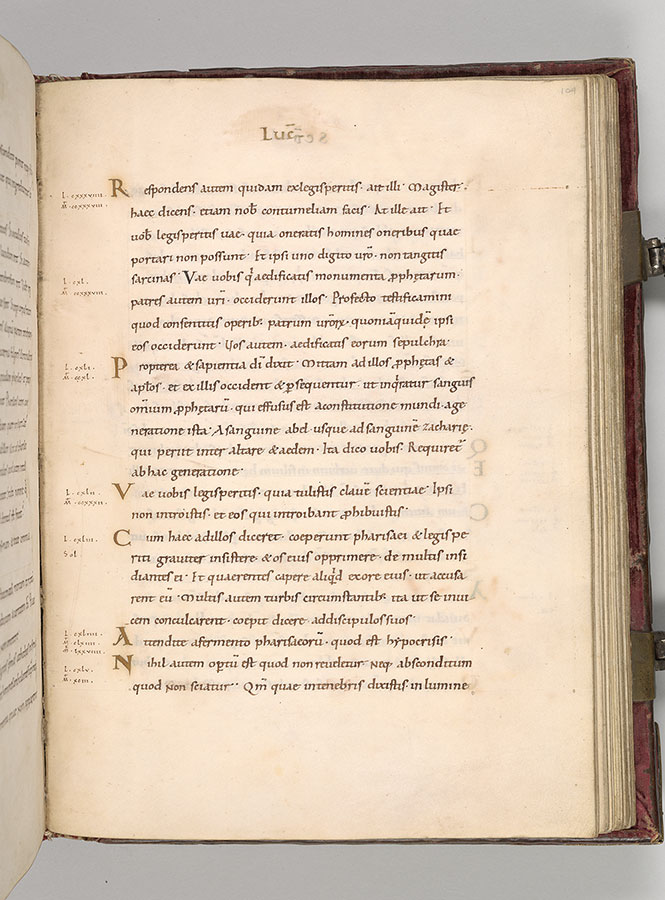 LUC̄
104
Respondens autem quidam exlegisperitis · ait illi · Magister ·
haec dicens · etiam nob̄ contumeliam facis · At ille ait · Et
uob̄ legisperitis uae · quia oneratis homines oneribus quae
portari non possunt · Et ipsi uno digito ur̄o · non tangitis
sarcinas · Vae uobis q̄ aedificatis monumenta ꝓphetarum ·
patres autem ur̄i · occiderunt illos · Profecto testificamini
quod consentitis operib; patrum ur̄orꝝ · quoniā quidē ipsi
eos occiderunt · Uos autem · aedificatis eorum sepulchra ·
Propterea & sapientia dī dixit · Mittam ad illos ꝓphetas &
apl̄os · et ex illis occident & ꝑsequentur · ut inq̄ratur sanguis
omnium ꝓphetarū · qui effusus est aconstitutione mundi · age
neratione ista · Asanguine abel · usque ad sanguinē zacharię ·
qui periit inter altare & aedem · Ita dico uobis · Requiret̄
ab hac generatione ·
Vae uobis legisperitis · quia tulistis clauē scientiae · Ipsi
non introistis · et eos qui introibant ꝓhibuistis ·
Cum haec adillos diceret · coeperunt pharisaei & legispe
riti grauiter insistere · & os eius opprimere · de multis insi
diantes ei · Et quaerentes capere aliqd̄ exore eius · ut accusa
rent eū · Multis autem turbis circumstantib; · ita ut se inui
cem conculcarent · coepit dicere addiscipulos suos ·
Attendite afermento pharisaeorū · quod est hypocrisis ·
Nihil autem optū est quod non reueletur · Neq; absconditum
quod non sciatur · Qm̄ quae intenebris dixistis · in lumine
L · cxxxviiii ·
L · cxl ·
L · cxli ·
L · cxlii ·
L · cxliii ·
Sol ·
L · cxliiii ·
L · cxlv ·